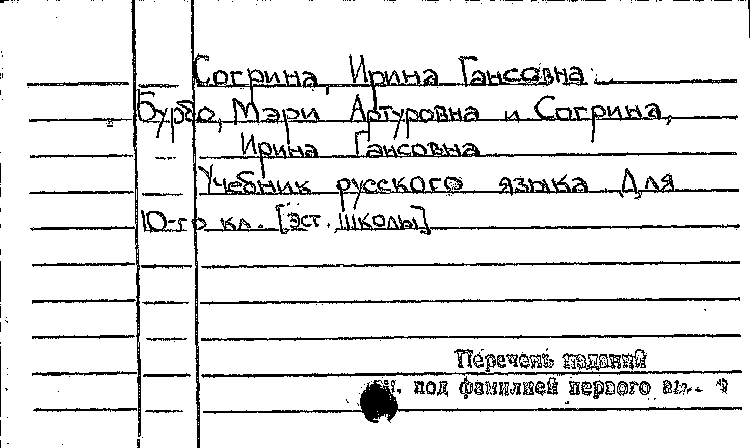 Согрина, Ирина Гансовна.
Бурбо, Мэри Артуровна и Согрина,
Ирина Гансовна
Учебник русского языка для
10-го кл. [эст. школы]
Перечень изданий
под фамилией первого